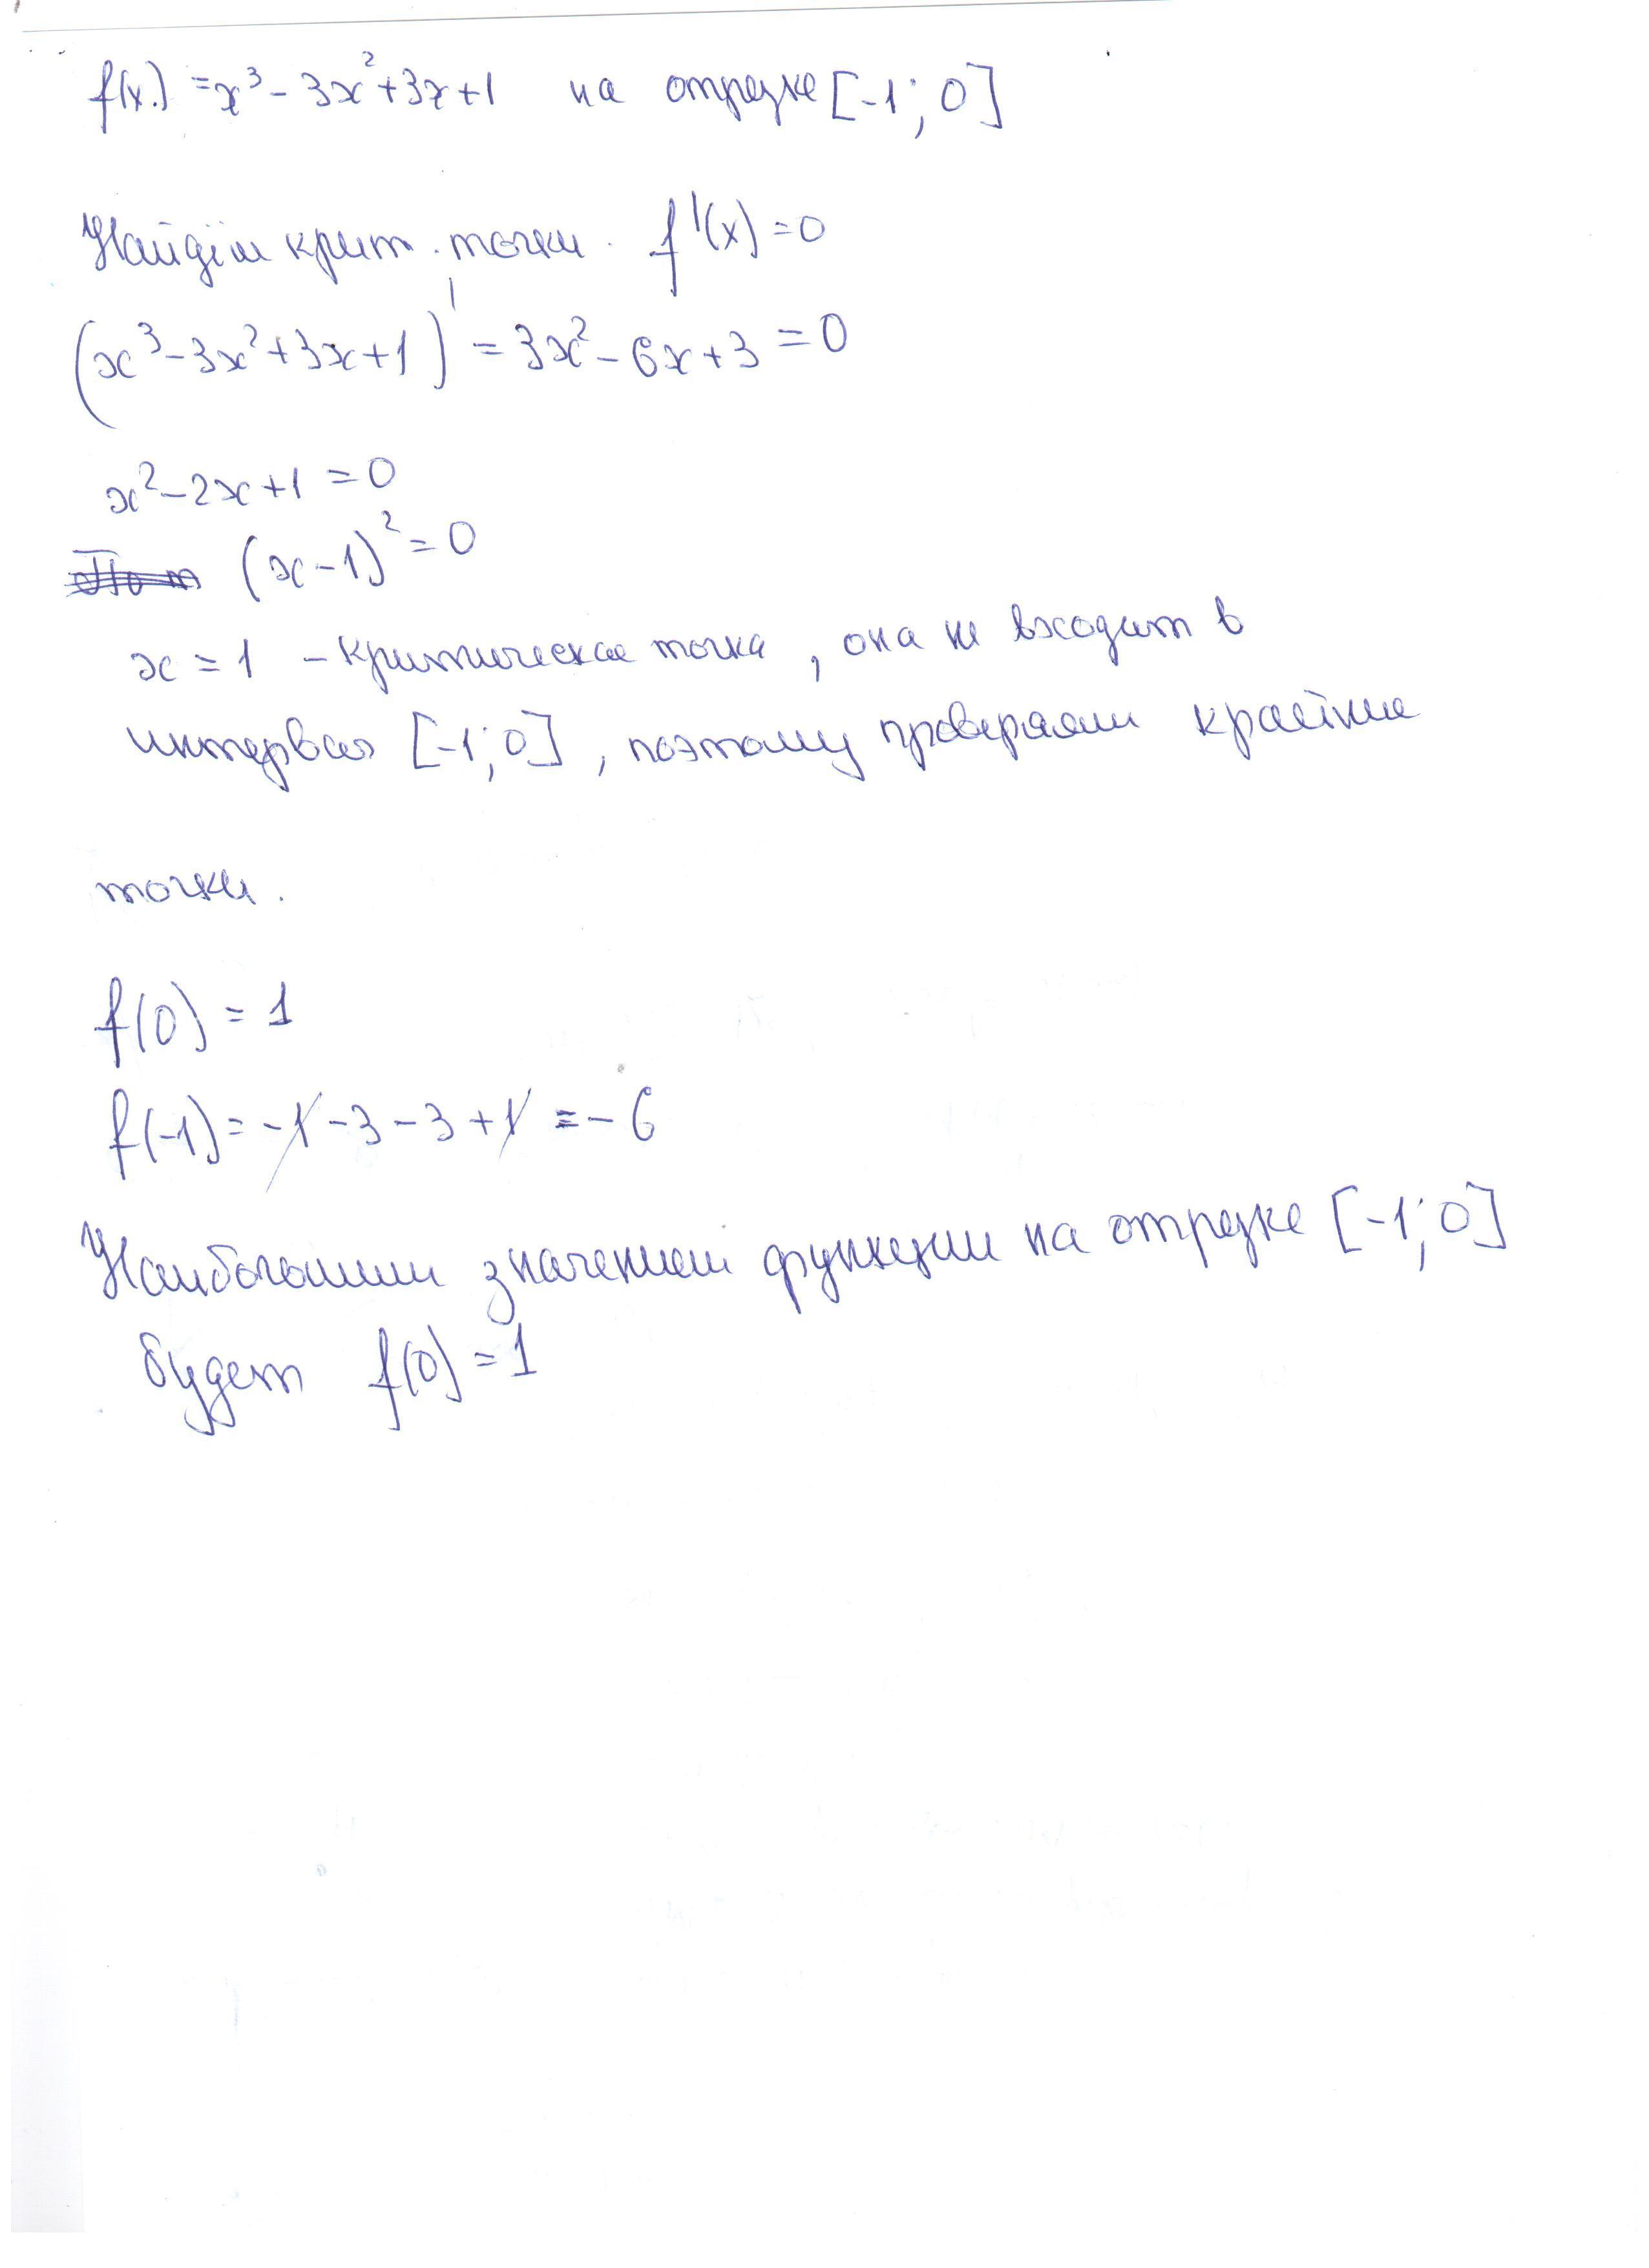 f(x) = x³ - 3x² + 3x + 1 на отрезке [-1; 0]
Найдём крит. точки. f'(x) = 0
(x³ - 3x² + 3x + 1)' = 3x² - 6x + 3 = 0
x² - 2x + 1 = 0
(x - 1)² = 0
x = 1 - критическая точка, она не входит в
интервал [-1; 0], поэтому проверяем крайние
точки.
f(0) = 1
f(-1) = -1 - 3 - 3 + 1 = -6
Наибольшим значением функции на отрезке [-1; 0]
будет f(0) = 1